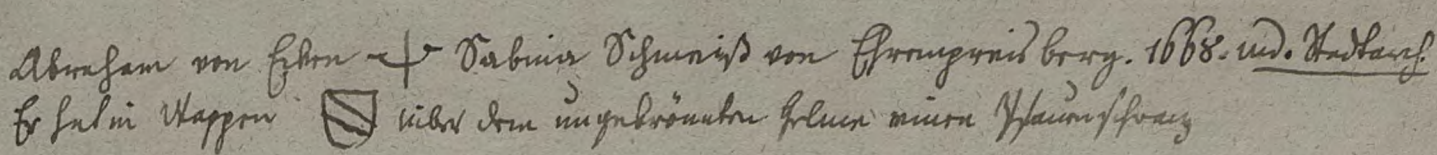 Abraham von Erken Sabina Schmeiß von Ehrenpreisberg. 1668. Stadtarch.
Er hat im Wappen über dem ungekrönten Helme einen Pfauenschwanz